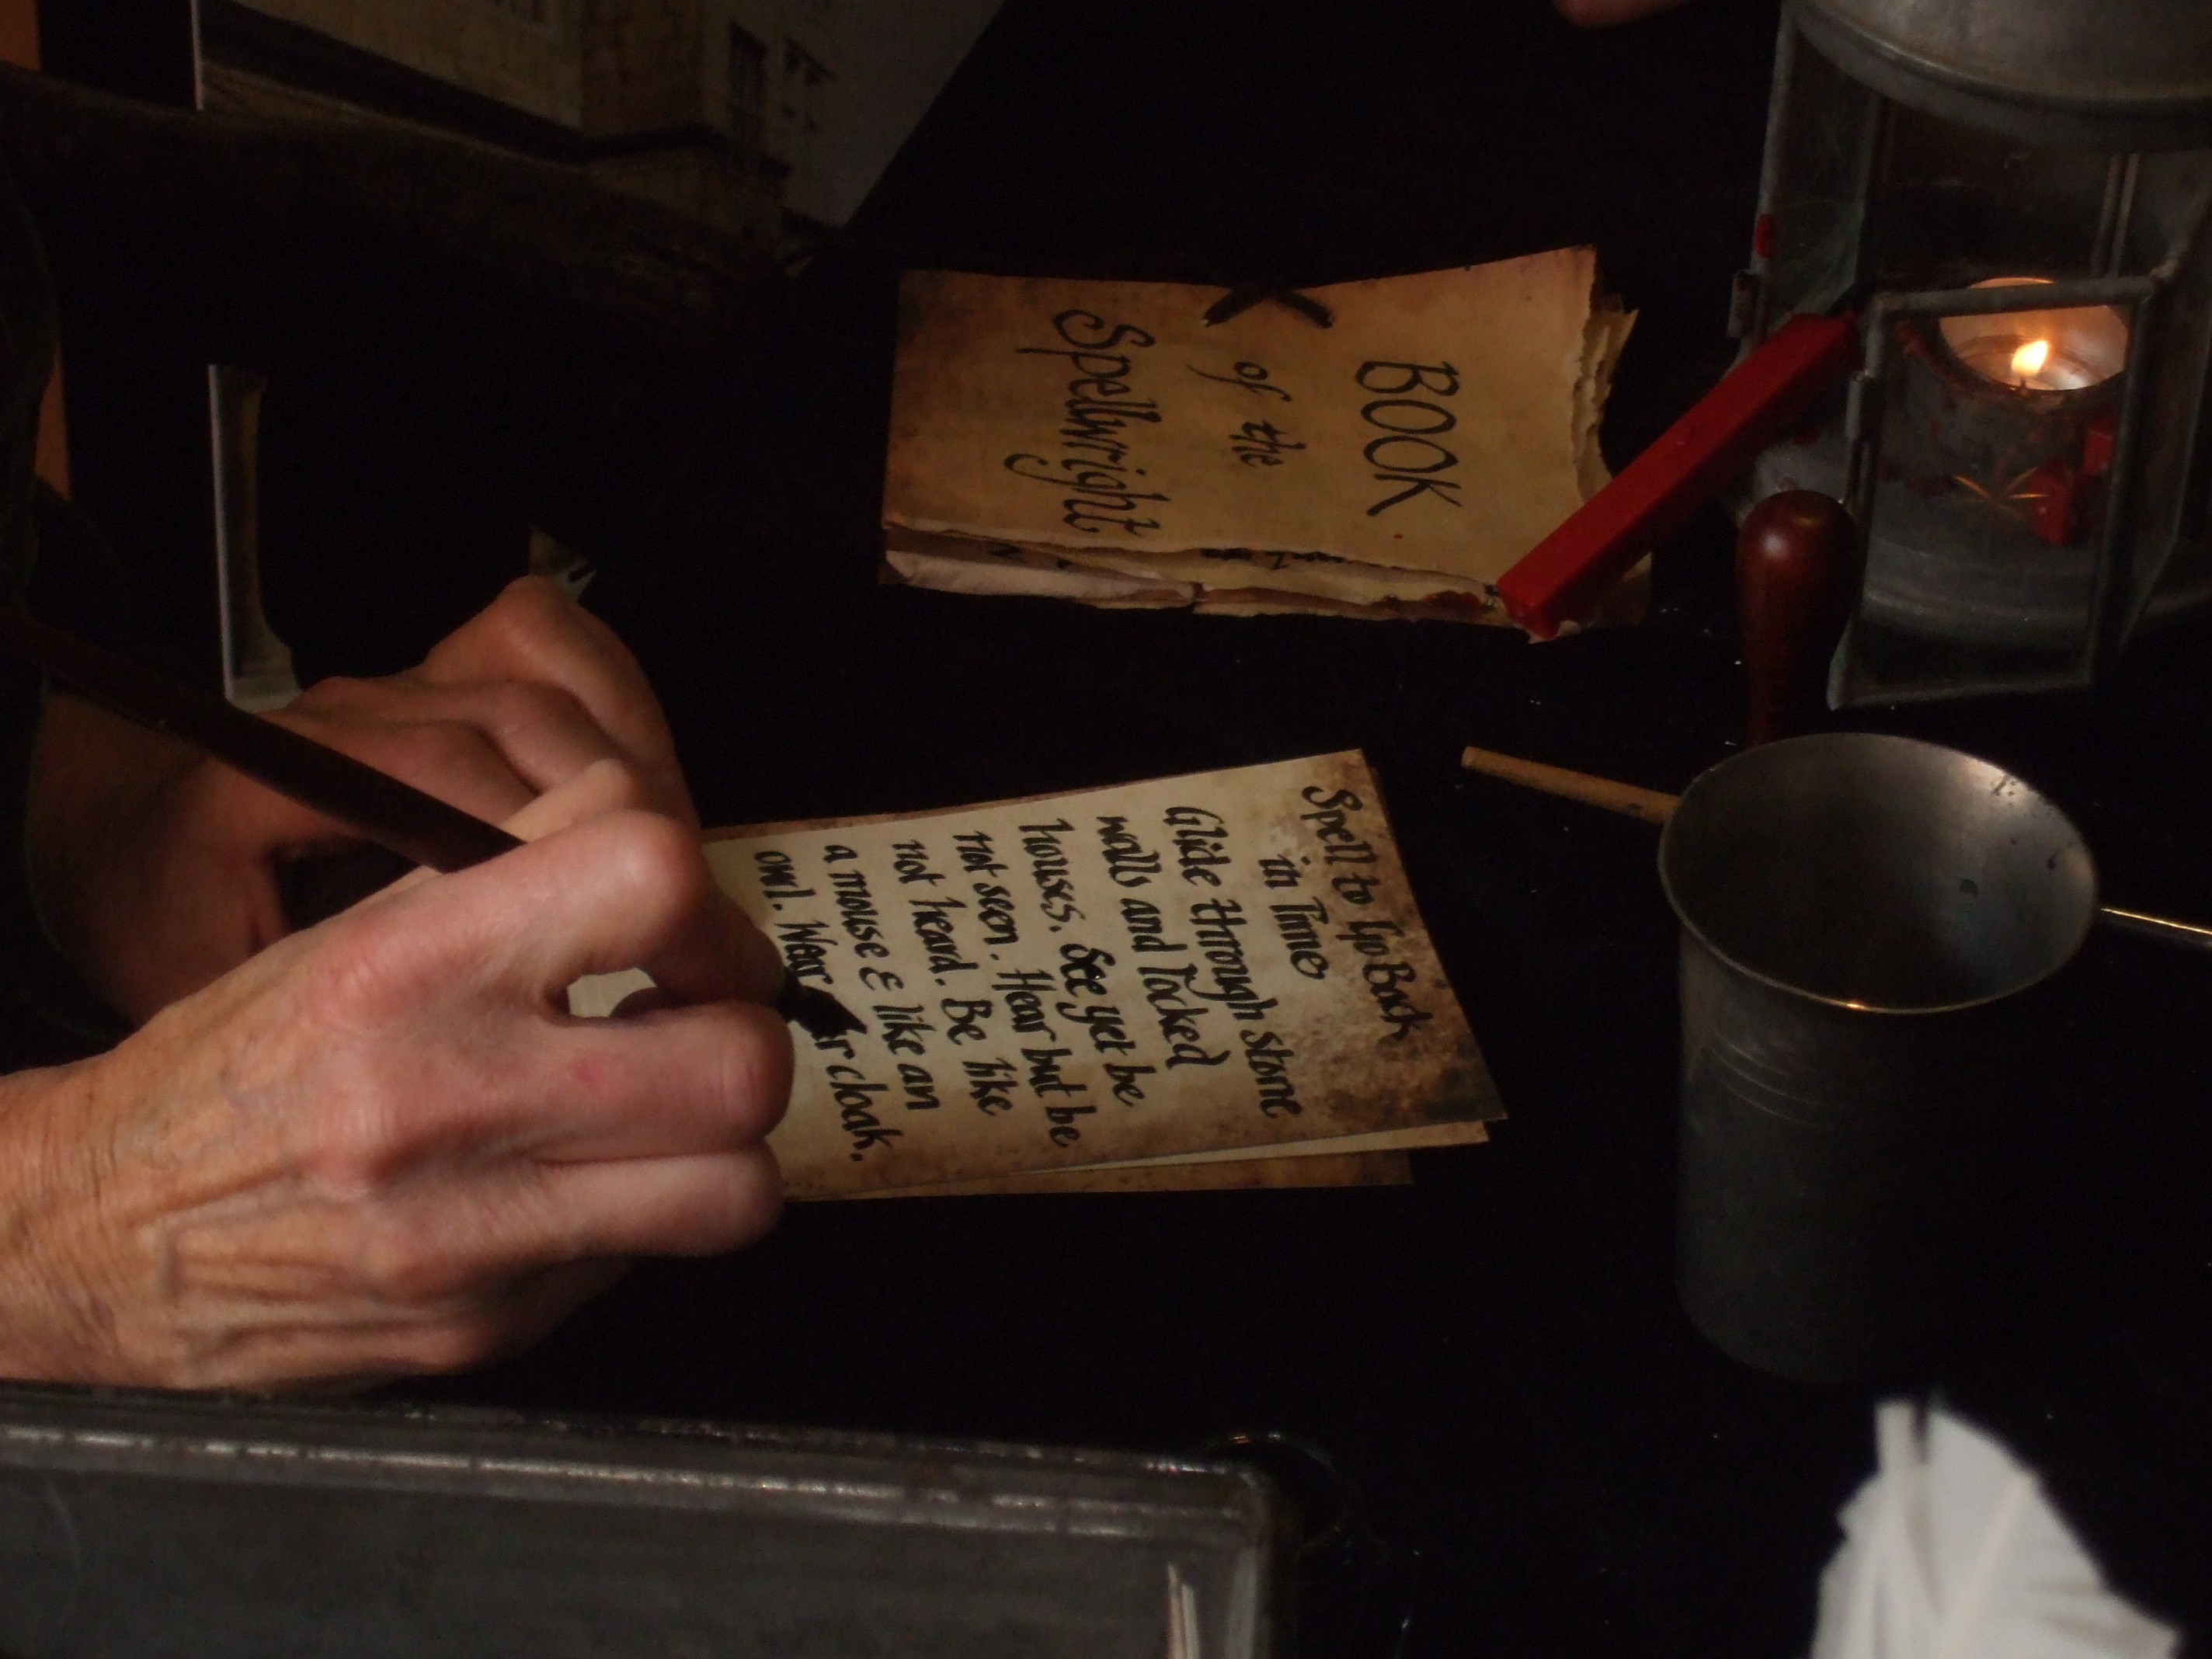 BOOK
of the
Spellwright
Spell to Go Back
in Time
Glide through stone
walls and locked
houses. See yet be
not seen. Hear but be
not heard. Be like
a mouse & like an
owl. Wear cloak.